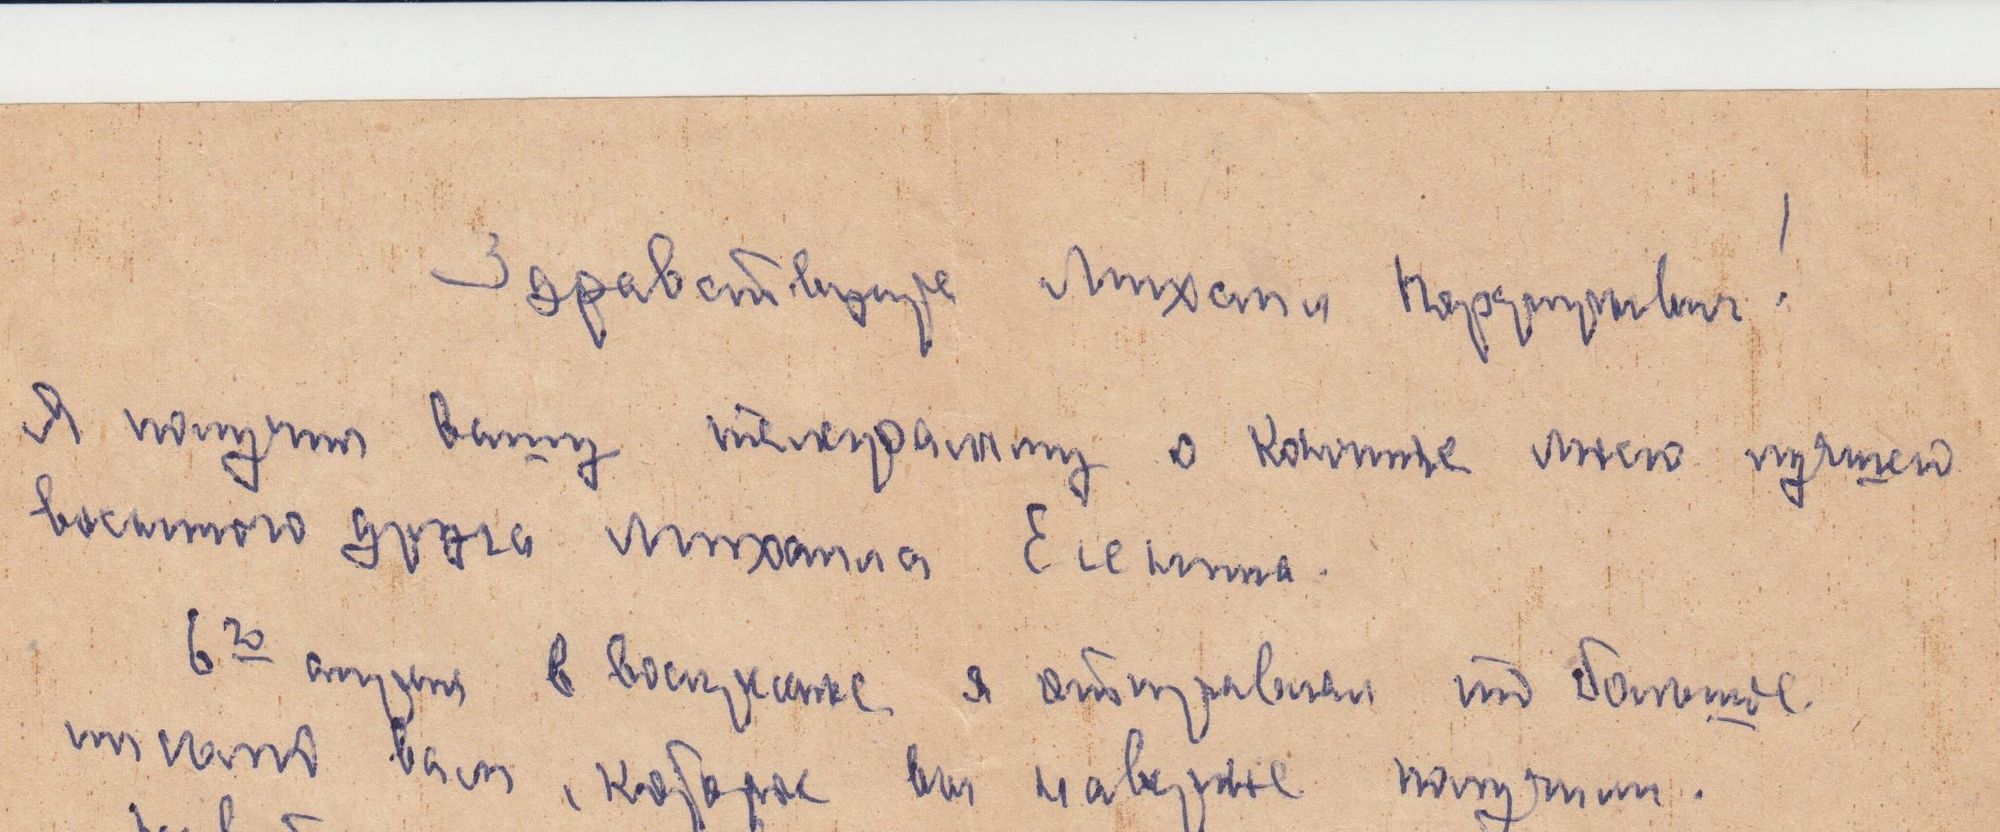 Здравствуйте Михаил
Я получил вашу телеграмму о кончине моего лучшего
военного друга Михаила Еленина.
6го апреля в воскресенье я отправил то большое
письмо вам, которое вы наверное получили.